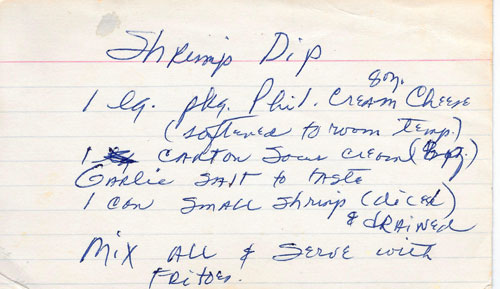 Shrimp Dip
8 oz.
1 lg. pkg. Phil. Cream Cheese
(softened to room temp.)
1 carton Sour Cream (8 oz.)
Garlic salt to taste
1 can small shrimp (diced)
& drained
Mix all & serve with
Fritoes.